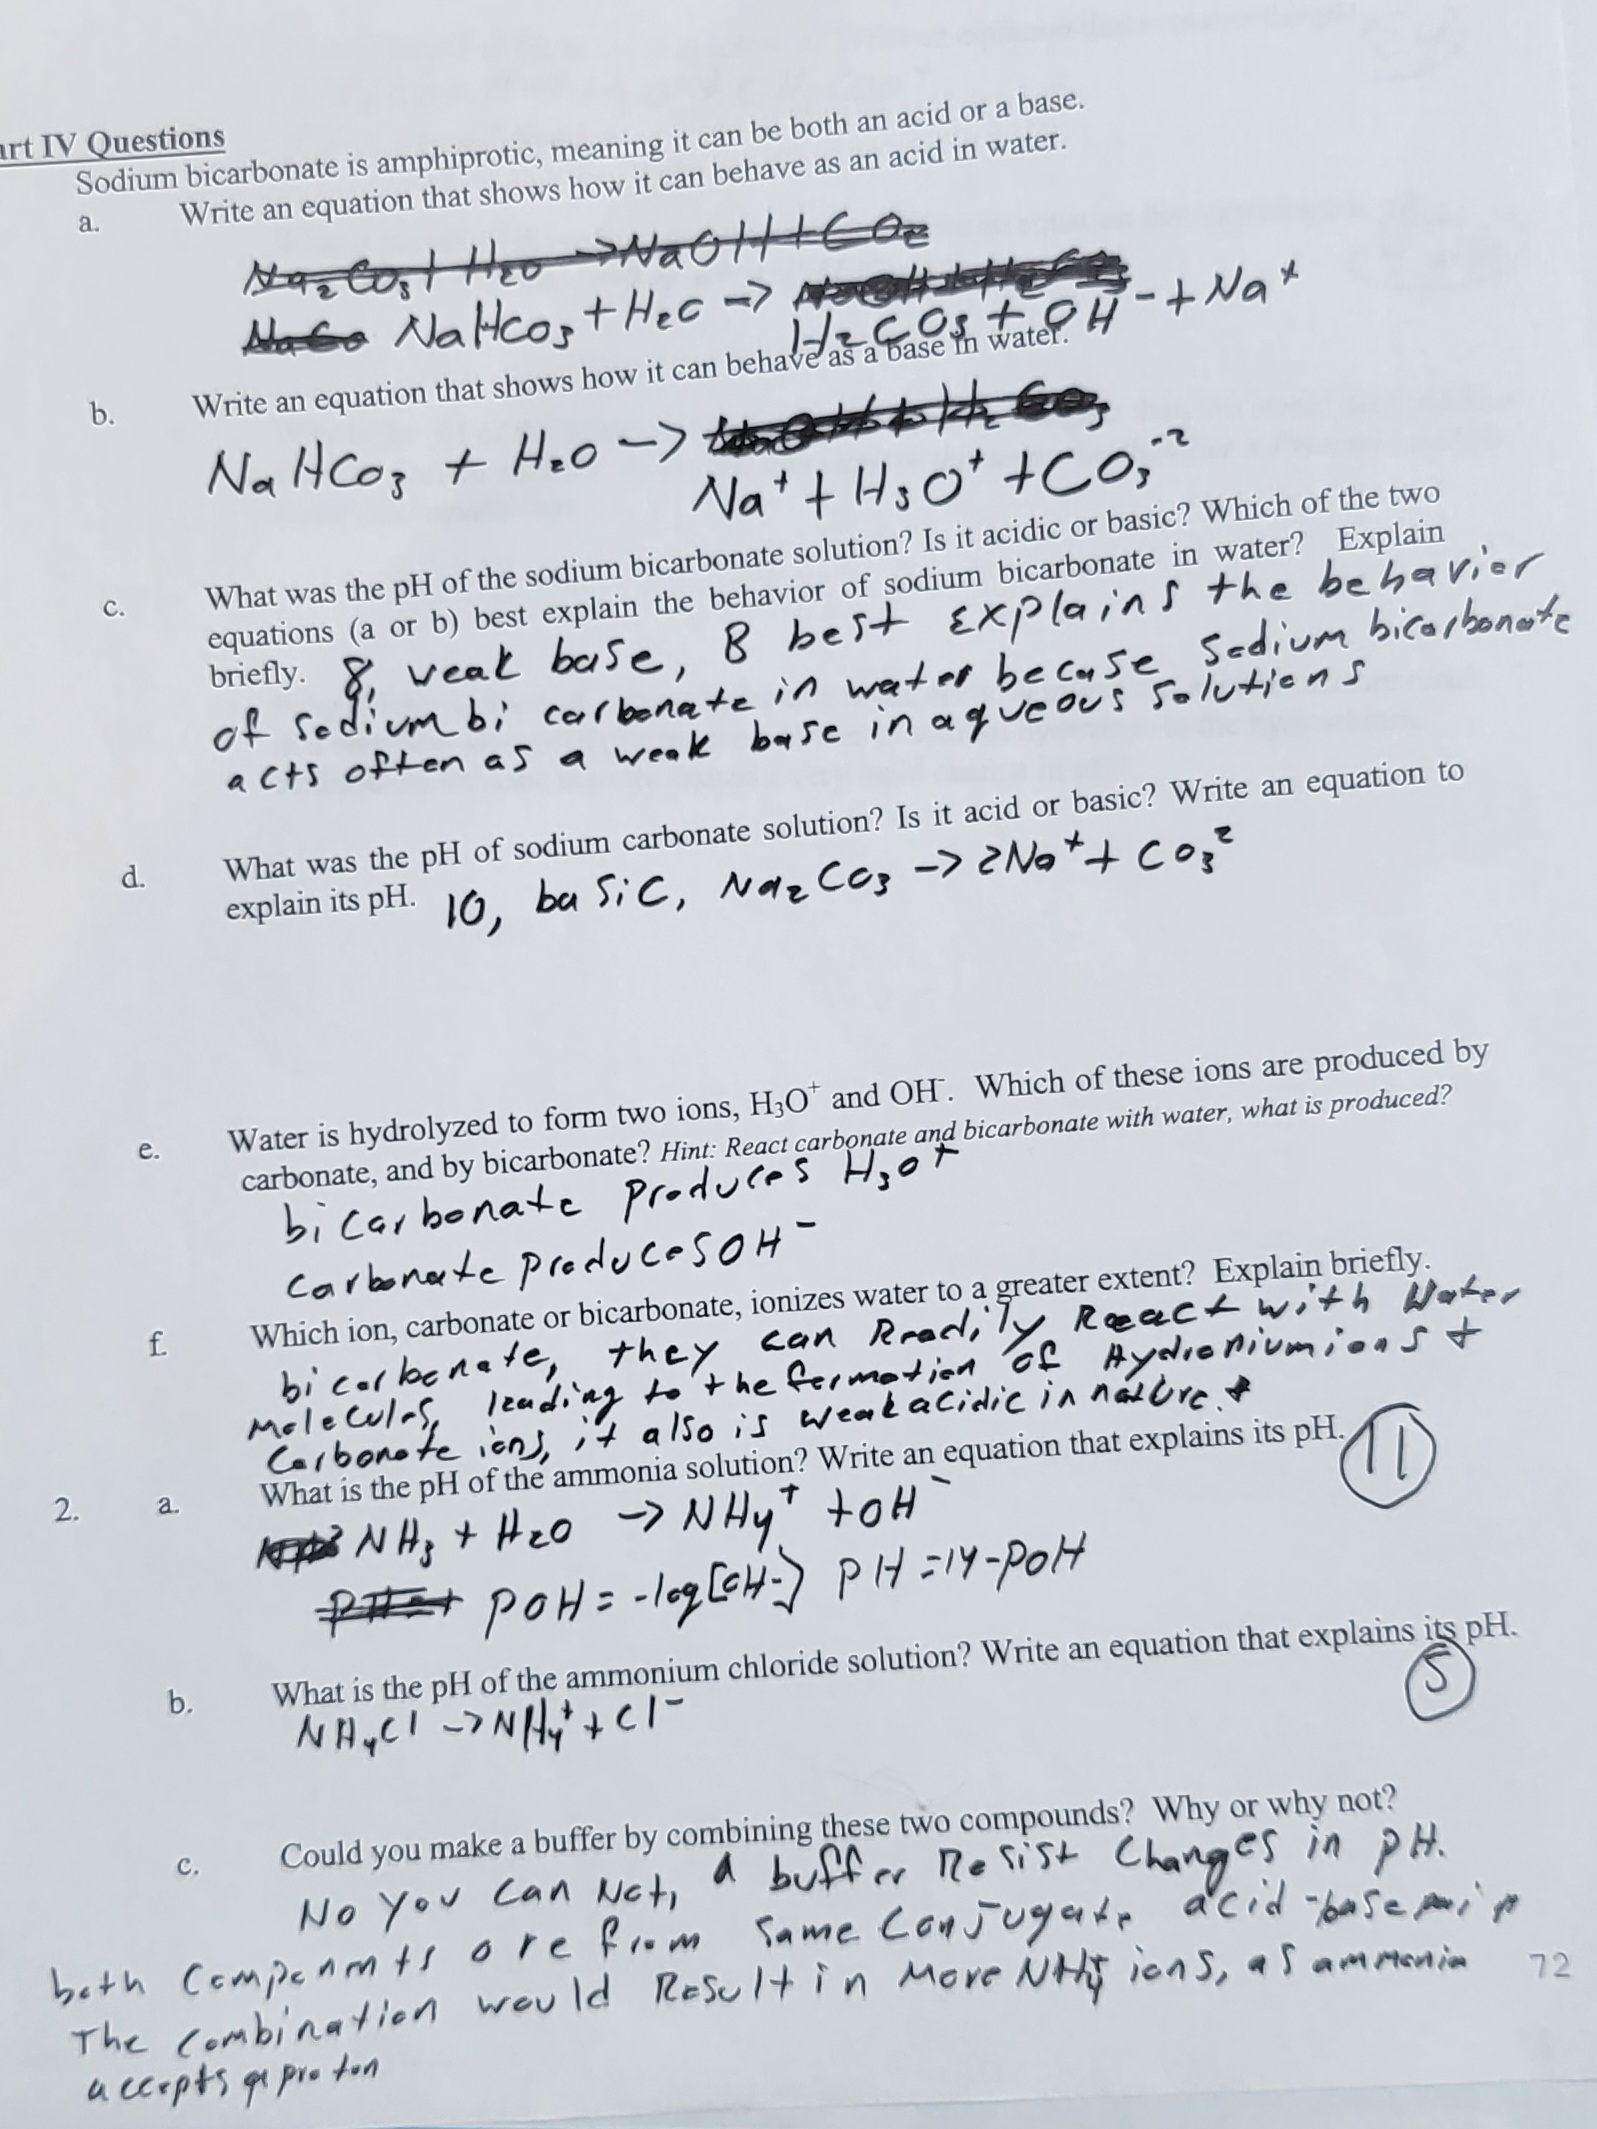 art IV Questions
Sodium bicarbonate is amphiprotic, meaning it can be both an acid or a base.
a. Write an equation that shows how it can behave as an acid in water.
Na₂CO₃ + H₂O → NaOH + CO₂
NaCo NaHCO₃ + H₂O →
H₂CO₃ + OH⁻ + Na⁺
b. Write an equation that shows how it can behave as a base in water.
NaHCO₃ + H₂O → NaOH + H₂CO₃
Na⁺ + H₃O⁺ + CO₃⁻²
c. What was the pH of the sodium bicarbonate solution? Is it acidic or basic? Which of the two
equations (a or b) best explain the behavior of sodium bicarbonate in water? Explain
briefly. 8, weak base, B best Explains the behavior
of sodium bi carbonate in water becase sodium bicarbonate
acts often as a weak base in aqueous solutions
d. What was the pH of sodium carbonate solution? Is it acid or basic? Write an equation to
explain its pH. 10, basic, Na₂CO₃ → 2Na⁺ + CO₃²
e. Water is hydrolyzed to form two ions, H₃O⁺ and OH⁻. Which of these ions are produced by
carbonate, and by bicarbonate? Hint: React carbonate and bicarbonate with water, what is produced?
bicarbonate produces H₃O⁺
carbonate produces OH⁻
f. Which ion, carbonate or bicarbonate, ionizes water to a greater extent? Explain briefly.
bicarbonate, they can Readily React with Water
Molecules, leading to the formation of Hydronium ions +
Carbonate ions, it also is weak acidic in nature.
2. a. What is the pH of the ammonia solution? Write an equation that explains its pH. 11
NH₃ + H₂O → NH₄⁺ + OH⁻
pOH = -log[OH-] PH = 14-POH
b. What is the pH of the ammonium chloride solution? Write an equation that explains its pH.
5
NH₄Cl → NH₄⁺ + Cl⁻
c. Could you make a buffer by combining these two compounds? Why or why not?
No You can Not, a buffer Resist Changes in pH.
both Compenmts are from same Conjugate acid-base pair
The Combination would Result in More NH₄⁺ ions, as ammonia
accepts a proton
72